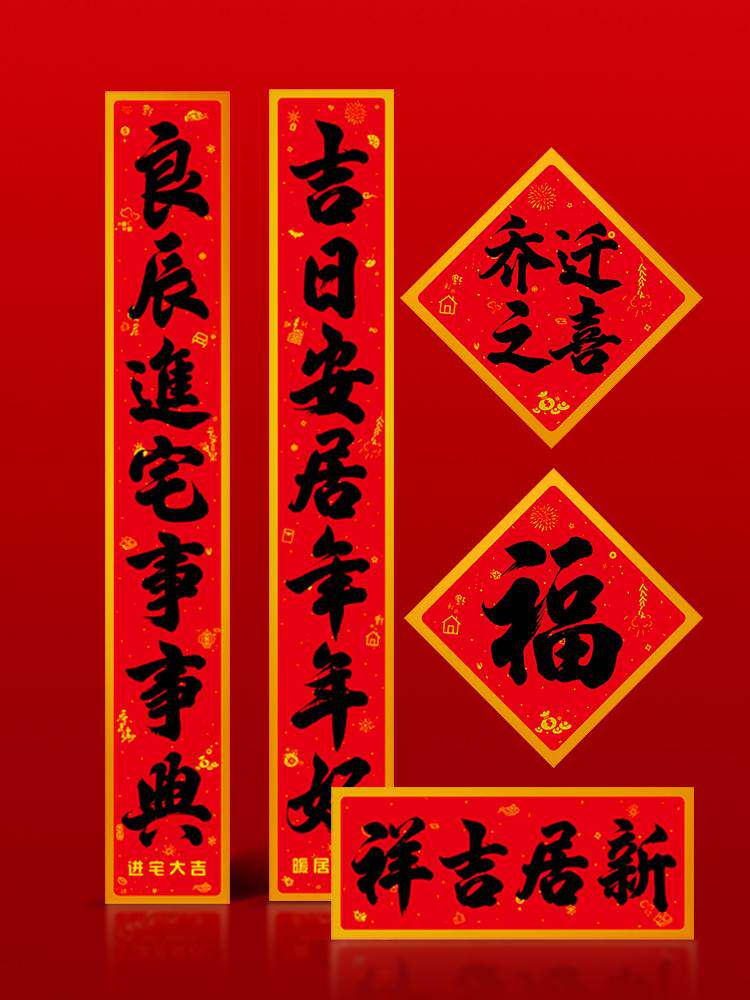 吉日安居年年好
暖居
良辰進宅事事興
进宅大吉
乔迁
之喜
福
新居吉祥